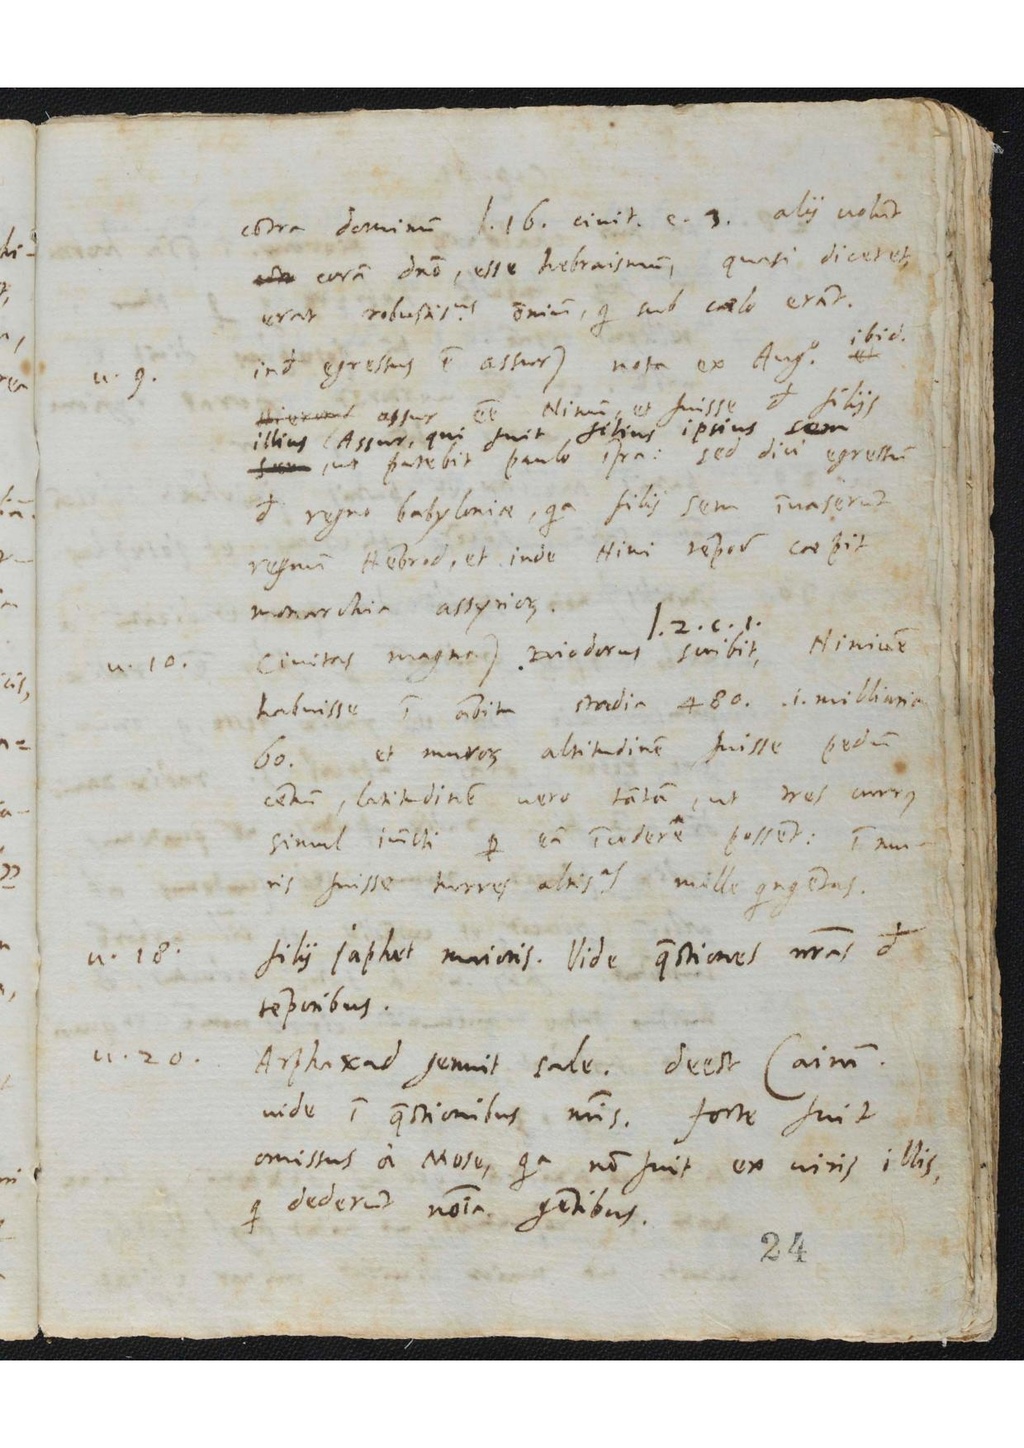 cõtra dominũ l. 16. civit. c. 3. alij uolũt
corã dnõ, esse hebraismũ, quasi diceret,
erat robustisus õniũ, q sub cælo erãt.
u. 9. inď egressus ẽ assur) nota ex Augo. ibid.
assur eẽ Ninũ, et fuisse ď filijs
illius (Assur, qui fuit filius ipsius sem
, ut patebit paulo ĩfra: sed dici egressũ
ď regno babyloniæ, qa filij sem ĩuaserũt
regnũ Nẽbrod, et inde Nini tẽpor cœpit
monarchia assyrioꝝ.
u. 10. Civitas magna) Diodorus l. 2. c. 1. scribit, Niniuẽ
habuisse ĩ ãbitu stadia 480. .i. milliaria
60. et muroꝝ altitudinẽ fuisse pedũ
cẽtũ, latitudinẽ uero tãtã, ut tres curr9
simul iũcti ꝑ eã ĩcedere possẽt: ĩ mu-
ris fuisse turres altisas mille qngẽtas.
u. 18. filij Japhet maioris. Vide q̃stiones nr̃as ď
tẽporibus.
u. 20. Arphaxad genuit sale. deest Cainã.
uide ĩ q̃stionibus nr̃is. forte fuit
omissus à Mose, qa nõ fuit ex uiris illis,
q dederũt noĩa gẽtibus.
24